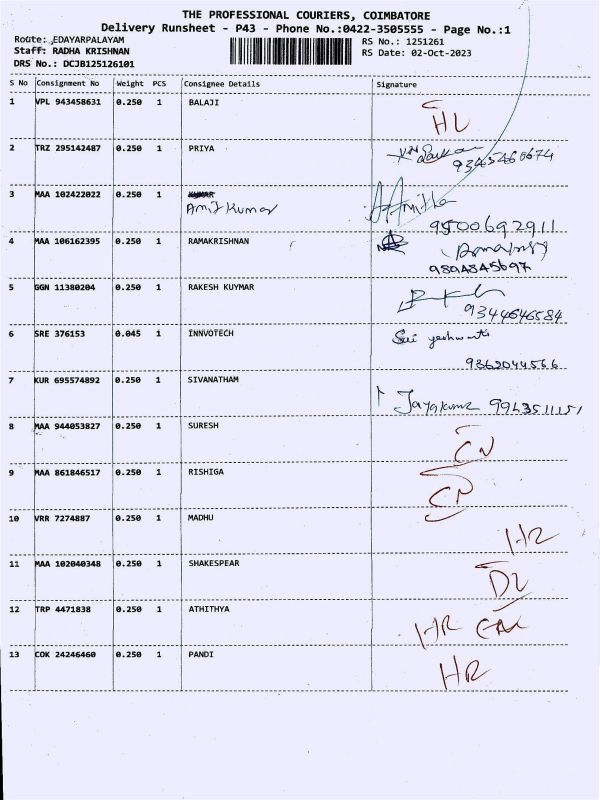 THE PROFESSIONAL COURIERS, COIMBATORE
Delivery Runsheet - P43 - Phone No.:0422-3505555 - Page No.:1
Route: EDAYARPALAYAM
RS No.: 1251261
Staff: RADHA KRISHNAN
RS Date: 02-Oct-2023
DRS No.: DCJB125126101
S No Consignment No Weight PCS Consignee Details Signature
1 VPL 943458631 0.250 1 BALAJI
HL
2 TRZ 295142487 0.250 1 PRIYA
3 MAA 102422022 0.250 1 KUMAR
Amit Kumar
9500692911
4 MAA 106162395 0.250 1 RAMAKRISHNAN
9894845697
5 GGN 11380204 0.250 1 RAKESH KUYMAR
9344646584
6 SRE 376153 0.045 1 INNVOTECH
9862044566
7 KUR 695574892 0.250 1 SIVANATHAM
Jayakumar
8 MAA 944053827 0.250 1 SURESH
CN
9 MAA 861846517 0.250 1 RISHIGA
10 VRR 7274887 0.250 1 MADHU
HR
11 MAA 102040348 0.250 1 SHAKESPEAR
DL
12 TRP 4471838 0.250 1 ATHITHYA
HR
13 COK 24246460 0.250 1 PANDI
HR